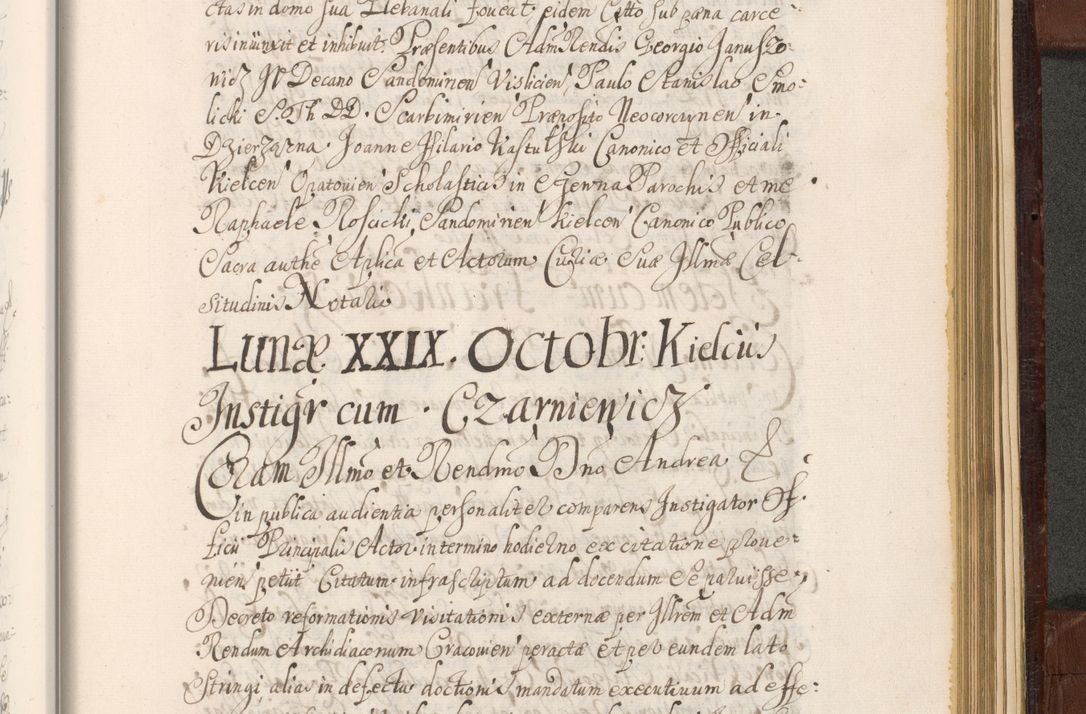 ctas in domo sua Plebanali foveat, eidem Citto sub pæna carce
ris inünxit et inhibuit. Præsentibus AdmRendis Georgio Januszo-
wicz Decano Sandomirien Vislicien, Paulo Stanislao Smo-
licki S. Th. DD. Scarbimirien Præposito Neocorcynen in
Dzierzązna Joanne Hilario Kastulski Canonico et Officiali
Kielcen Opatovien Scholasticis in Parochis et me
Raphaele Roscicki, Sandomirien Kielcen Canonico Publico
Sacra authe Aplica et Actorum Curiæ Suæ Illmæ Cel-
situdinis Notario
Lunæ XXIX. Octobr: Kielciis
Instigr cum Czarniewicz
Coram Illmo et Rendmo Dno Andrea &
in publica audientia personaliter comparens Instigator Of-
ficii Principalis Actor in termino hodierno ex citatione prove-
nien petiit Citatum infrascriptum ad docendum se paruisse
Decreto reformationis visitationis externæ per Illrem et Adm
Rendum Archidiaconum Cracovien peractæ et per eundem lato
stringi, alias in defectu doctionis mandatum executivum ad effe: